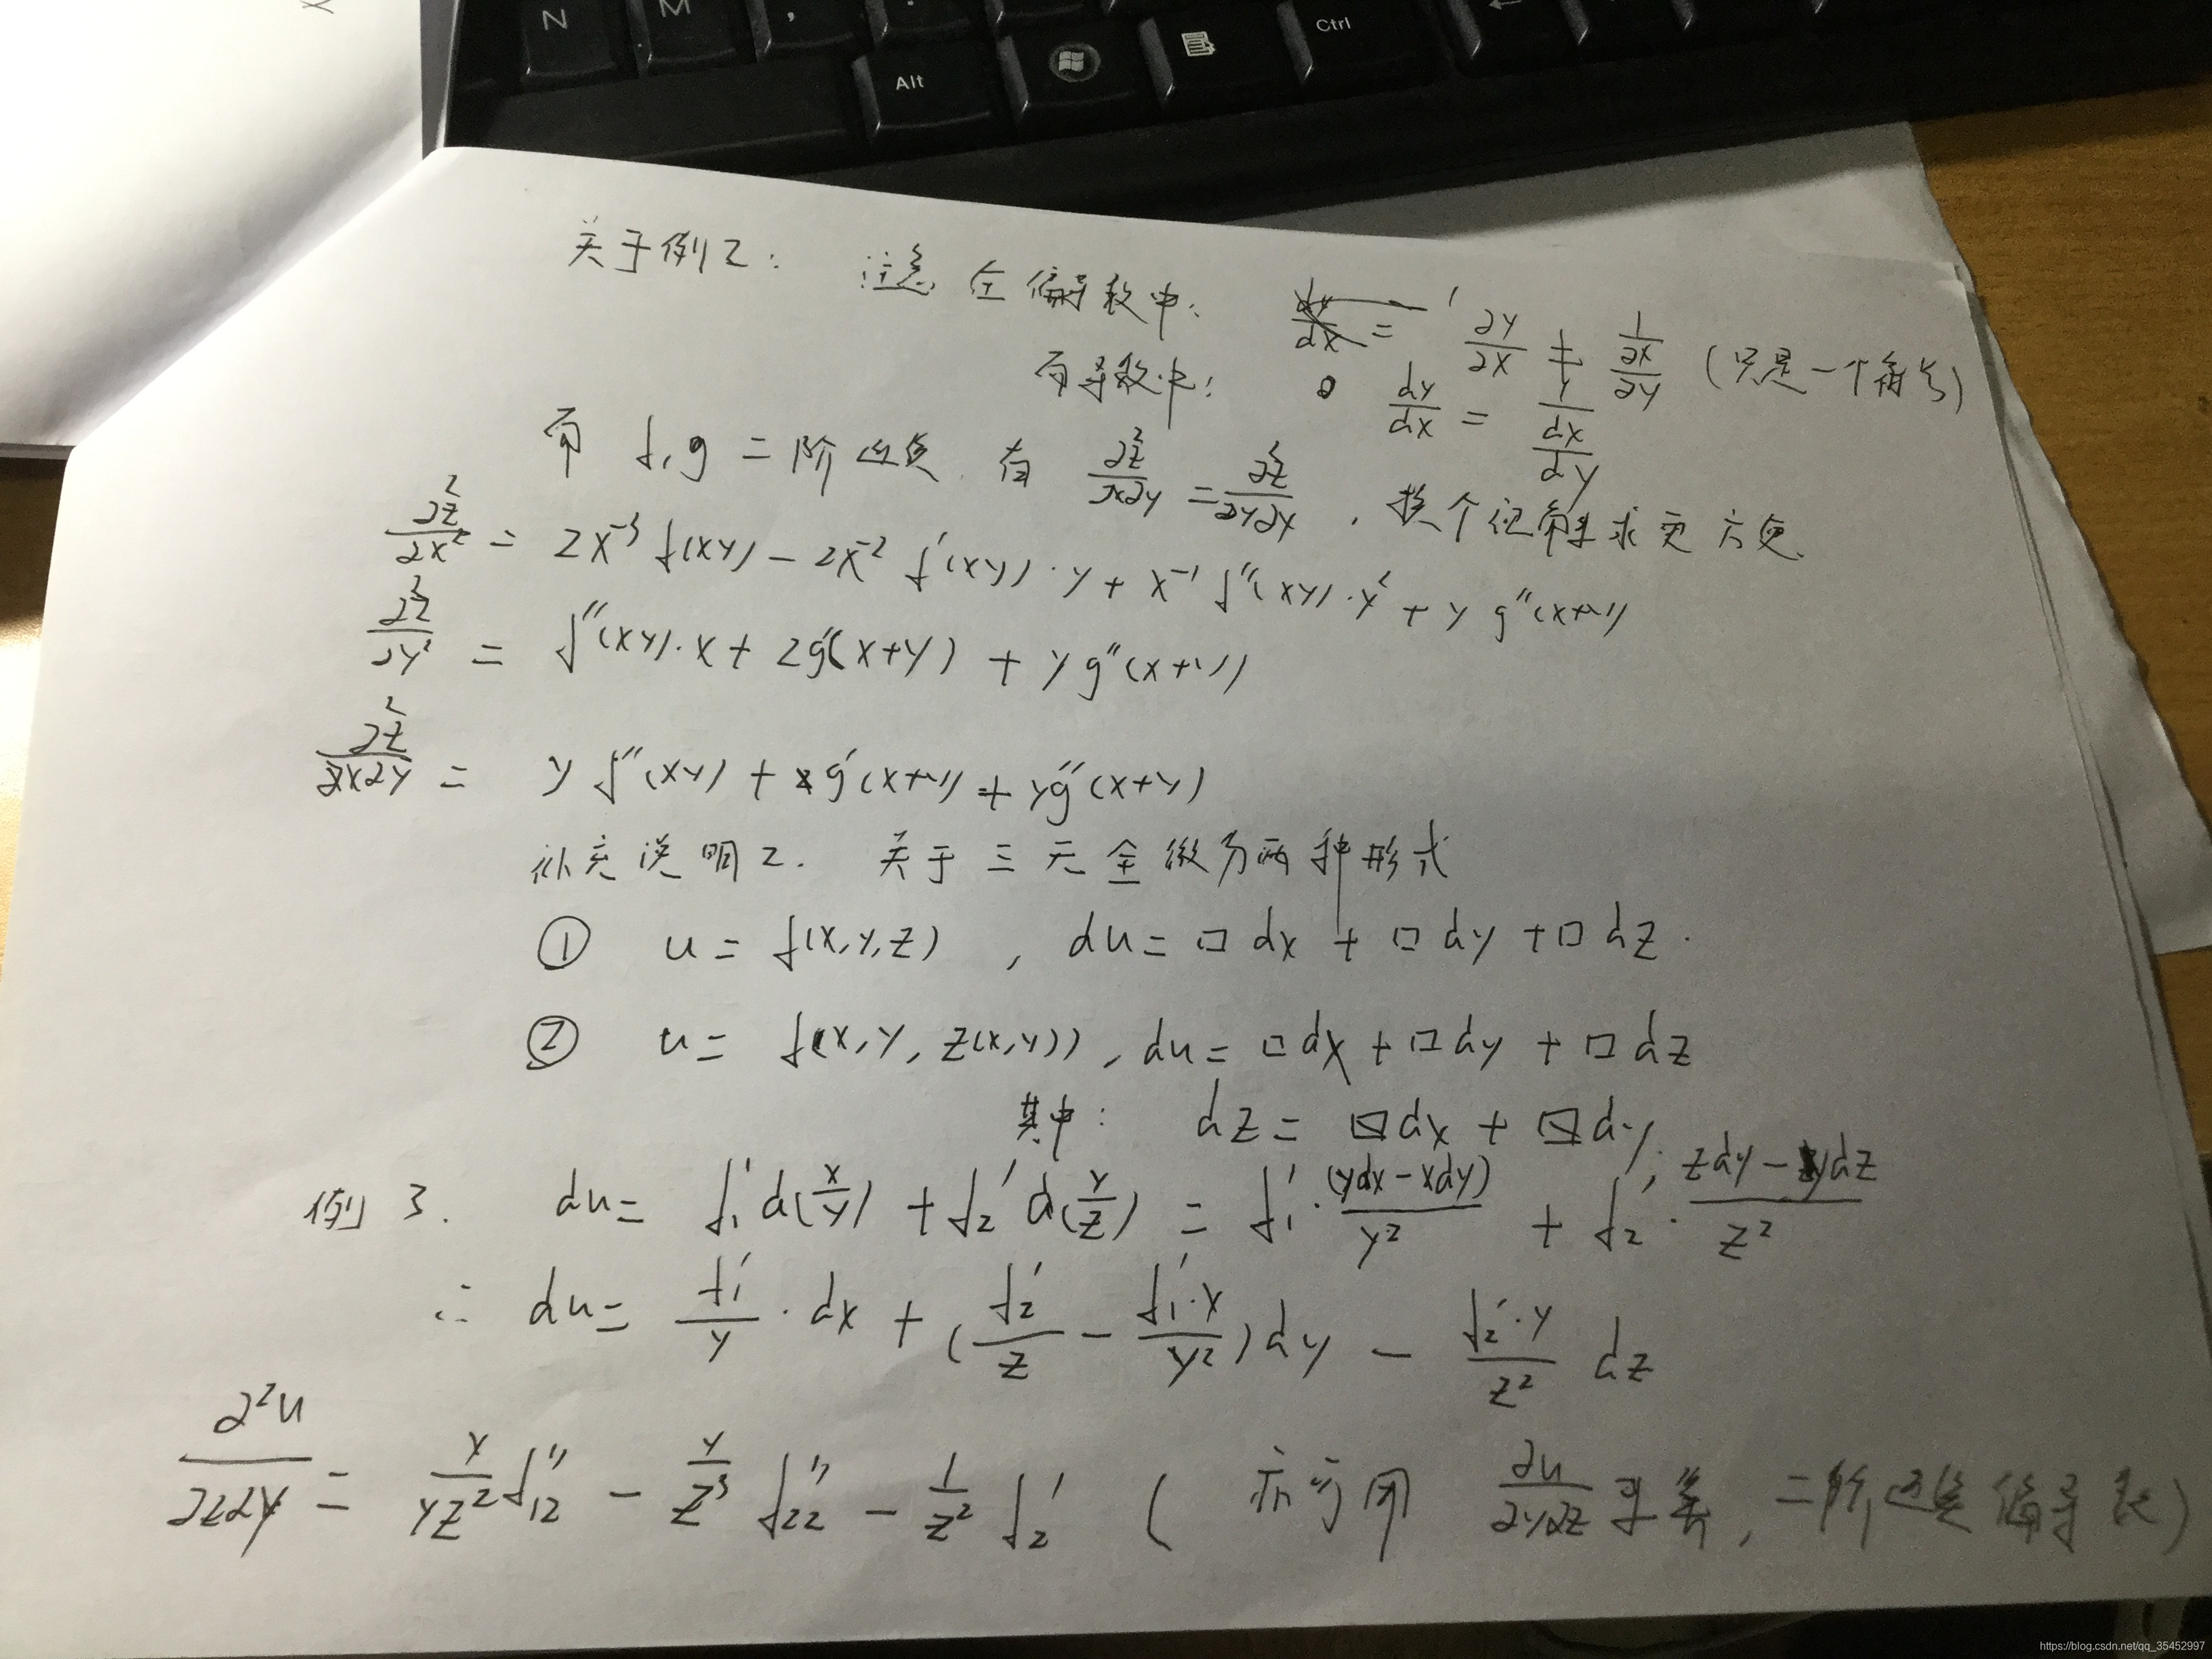 N M , .
Alt Ctrl
关于例2: 注意 全偏导数中: dy/dx = ∂y/∂x ≠ 1/(∂x/∂y) (只是一个符号)
而导数中: dy/dx = 1/(dx/dy)
而 f,g 二阶连续 有 ∂²z/∂x∂y = ∂²z/∂y∂x , 换个 求更方便.
∂²z/∂x² = 2x⁻³ f(xy) - 2x⁻² f'(xy)·y + x⁻¹ f''(xy)·y² + y g''(x+y)
∂²z/∂y² = f''(xy)·x + 2g'(x+y) + y g''(x+y)
∂²z/∂x∂y = y f''(xy) + g'(x+y) + yg''(x+y)
补充说明2. 关于三元全微分两种形式
① u = f(x,y,z) , du = □ dx + □ dy + □ dz.
② u = f(x, y, z(x,y)) , du = □ dx + □ dy + □ dz
其中: dz = □dx + □dy
例3. du = f₁' d(x/y) + f₂' d(y/z) = f₁'·(ydx - xdy)/y² + f₂'·(zdy - ydz)/z²
∴ du = f₁'/y · dx + (f₂'/z - f₁'·x/y²)dy - f₂'·y/z² dz
∂²u/∂z∂y = x/yz² f₁₂'' - y/z³ f₂₂'' - 1/z² f₂' ( 亦可用 ∂u/∂y∂z 求 , 二阶连续偏导 )
https://blog.csdn.net/qq_35452997